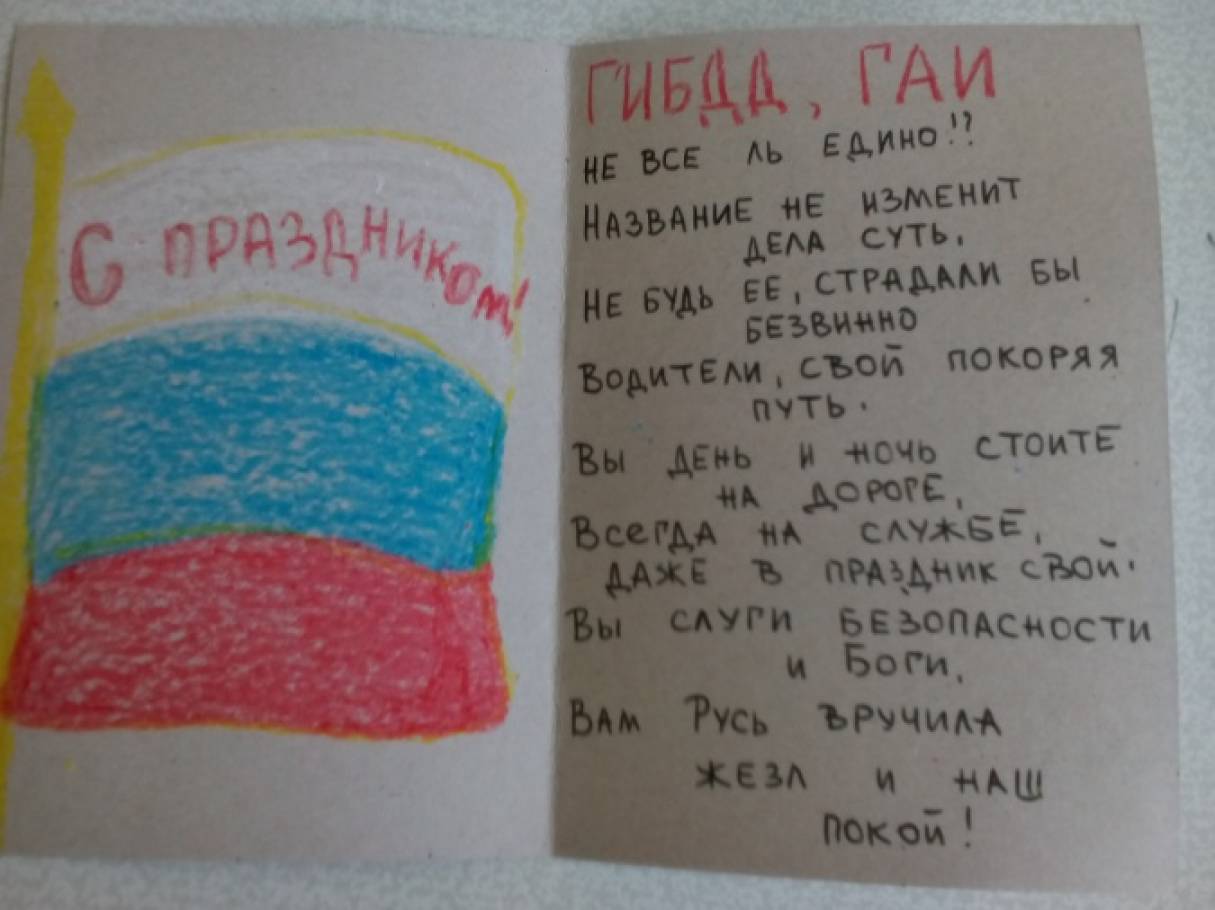 С ПРАЗДНИКОМ!
ГИБДД, ГАИ
НЕ ВСЕ ЛЬ ЕДИНО!?
НАЗВАНИЕ НЕ ИЗМЕНИТ
ДЕЛА СУТЬ,
НЕ БУДЬ ЕЕ, СТРАДАЛИ БЫ
БЕЗВИННО
ВОДИТЕЛИ, СВОЙ ПОКОРЯЯ
ПУТЬ.
ВЫ ДЕНЬ И НОЧЬ СТОИТЕ
НА ДОРОГЕ,
ВСЕГДА НА СЛУЖБЕ,
ДАЖЕ В ПРАЗДНИК СВОЙ.
ВЫ СЛУГИ БЕЗОПАСНОСТИ
И БОГИ,
ВАМ РУСЬ ВРУЧИЛА
ЖЕЗЛ И НАШ
ПОКОЙ!